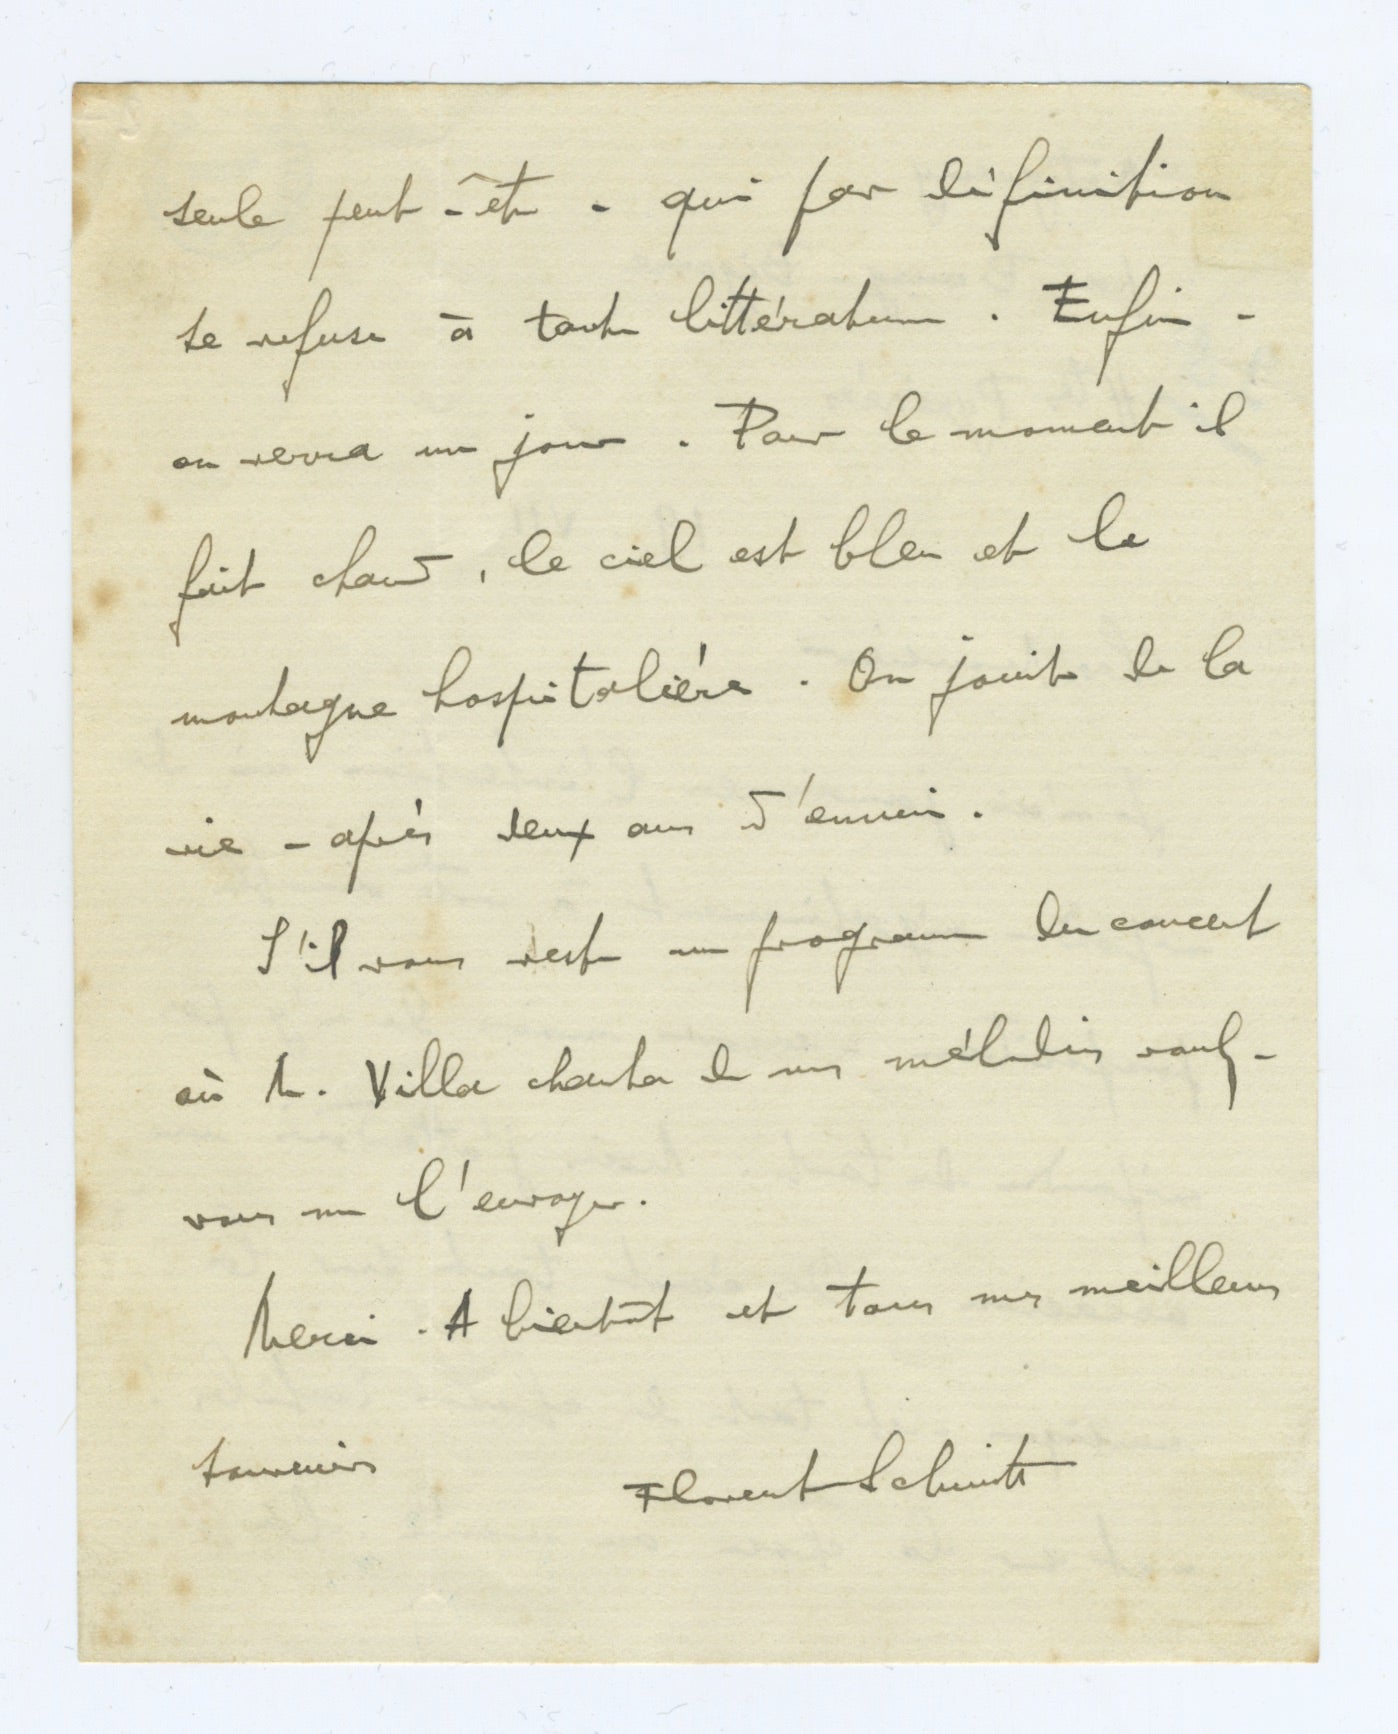 seule peut-être - qui par définition
se refuse à toute littérature. Enfin -
on verra un jour. Pour le moment il
fait chaud, le ciel est bleu et la
montagne hospitalière. On jouit de la
vie - après deux ans d'ennui.
S'il vous reste un programme du concert
où M. Villa chanta de mes mélodies voulez-
vous me l'envoyer.
Merci. A bientôt et tous mes meilleurs
souvenirs
Florent Schmitt